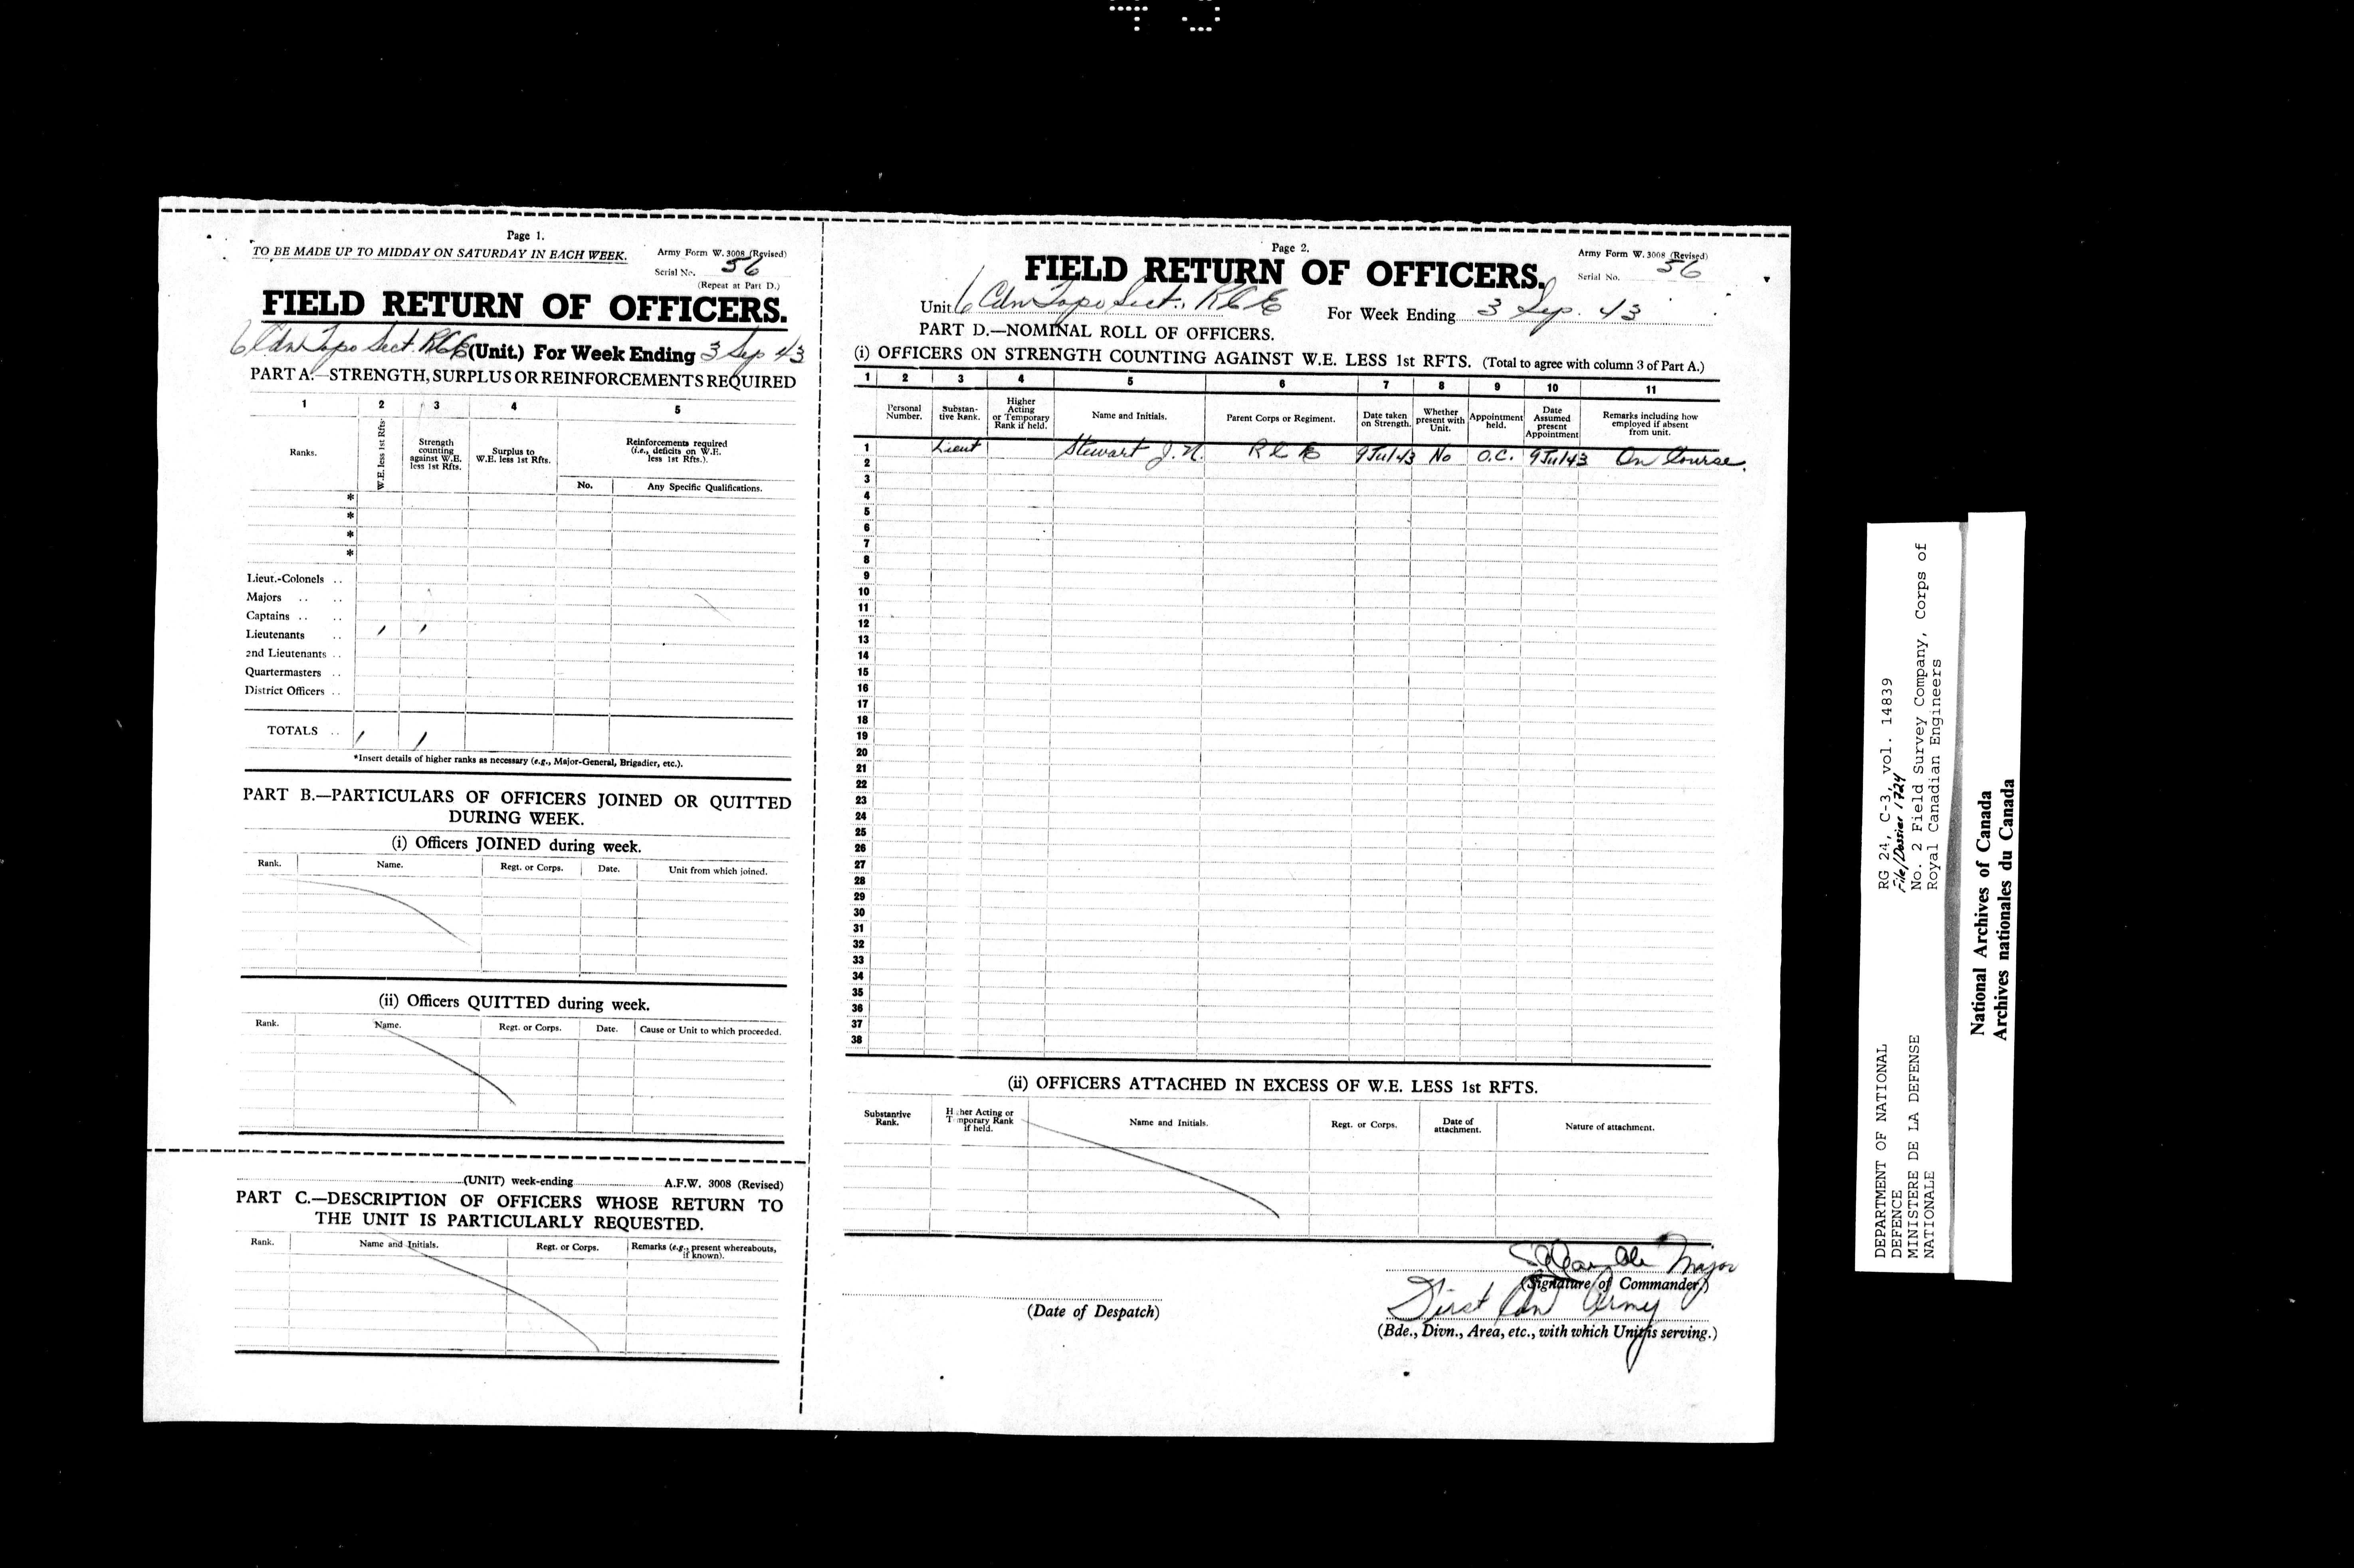 Page 1.
TO BE MADE UP TO MIDDAY ON SATURDAY IN EACH WEEK.
Army Form W. 3008 (Revised)
Serial No. 56
(Repeat at Part D.)
FIELD RETURN OF OFFICERS.
6 Cdn Topo Sect. RCE (Unit.) For Week Ending 3 Sep 43
PART A.—STRENGTH, SURPLUS OR REINFORCEMENTS REQUIRED
1 2 3 4 5
Ranks.
W.E. less 1st Rfts.
Strength counting against W.E. less 1st Rfts.
Surplus to W.E. less 1st Rfts.
Reinforcements required (i.e., deficits on W.E. less 1st Rfts.).
No. Any Specific Qualifications.
*
*
*
*
Lieut.-Colonels ..
Majors .. ..
Captains .. ..
Lieutenants .. 1 1
2nd Lieutenants ..
Quartermasters ..
District Officers ..
TOTALS .. 1 1
*Insert details of higher ranks as necessary (e.g., Major-General, Brigadier, etc.).
PART B.—PARTICULARS OF OFFICERS JOINED OR QUITTED
DURING WEEK.
(i) Officers JOINED during week.
Rank. Name. Regt. or Corps. Date. Unit from which joined.
(ii) Officers QUITTED during week.
Rank. Name. Regt. or Corps. Date. Cause or Unit to which proceeded.
(UNIT) week-ending A.F.W. 3008 (Revised)
PART C.—DESCRIPTION OF OFFICERS WHOSE RETURN TO
THE UNIT IS PARTICULARLY REQUESTED.
Rank. Name and Initials. Regt. or Corps. Remarks (e.g., present whereabouts, if known).
Page 2.
Army Form W. 3008 (Revised)
Serial No. 56
FIELD RETURN OF OFFICERS.
Unit 6 Cdn Topo Sect. RCE For Week Ending 3 Sep. 43
PART D.—NOMINAL ROLL OF OFFICERS.
(i) OFFICERS ON STRENGTH COUNTING AGAINST W.E. LESS 1st RFTS. (Total to agree with column 3 of Part A.)
1 2 3 4 5 6 7 8 9 10 11
Personal Number.
Substantive Rank.
Higher Acting or Temporary Rank if held.
Name and Initials.
Parent Corps or Regiment.
Date taken on Strength.
Whether present with Unit.
Appointment held.
Date Assumed present Appointment
Remarks including how employed if absent from unit.
1 Lieut Stewart J.N. RCE 9 Jul 43 No O.C. 9 Jul 43 On Course.
2
3
4
5
6
7
8
9
10
11
12
13
14
15
16
17
18
19
20
21
22
23
24
25
26
27
28
29
30
31
32
33
34
35
36
37
38
(ii) OFFICERS ATTACHED IN EXCESS OF W.E. LESS 1st RFTS.
Substantive Rank.
Higher Acting or Temporary Rank if held.
Name and Initials.
Regt. or Corps.
Date of attachment.
Nature of attachment.
Major
(Signature of Commander)
First Cdn Army
(Date of Despatch)
(Bde., Divn., Area, etc., with which Unit is serving.)
RG 24, C-3, vol. 14839
File/Dossier 1724
No. 2 Field Survey Company, Corps of
Royal Canadian Engineers
DEPARTMENT OF NATIONAL
DEFENCE
MINISTERE DE LA DEFENSE
NATIONALE
National Archives of Canada
Archives nationales du Canada